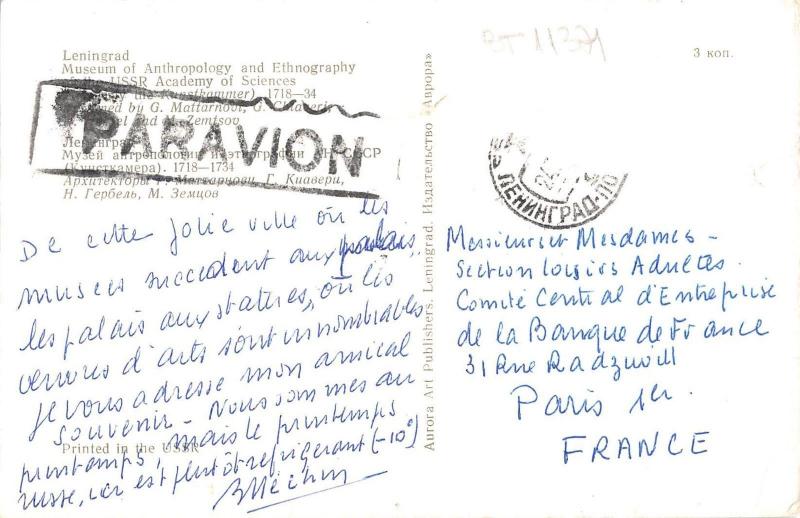 Leningrad
Museum of Anthropology and Ethnography
USSR Academy of Sciences
Kunstkammer). 1718—34
by G. Mattarnovi, G. Chiaveri,
and M. Zemtsov
PARAVION
Ленинград
Музей антропологии и этнографии АН СССР
(Кунсткамера). 1718—1734
Архитекторы Г. Маттарнови, Г. Киавери,
Н. Гербель, М. Земцов
De cette jolie ville où les
musées succèdent aux palais,
les palais aux statues, où les
œuvres d'arts sont innombrables,
je vous adresse mon amical
souvenir - Nous sommes au
printemps, mais le printemps
russe, car est plutôt réfrigérant (-10°)
Printed in the USSR
Aurora Art Publishers. Leningrad. Издательство «Аврора»
3 коп.
ЛЕНИНГРАД-ПО
Messieurs et Mesdames -
Section loisirs Adultes
Comité Central d'Entreprise
de la Banque de France
31 Rue Radziwill
Paris 1er.
FRANCE